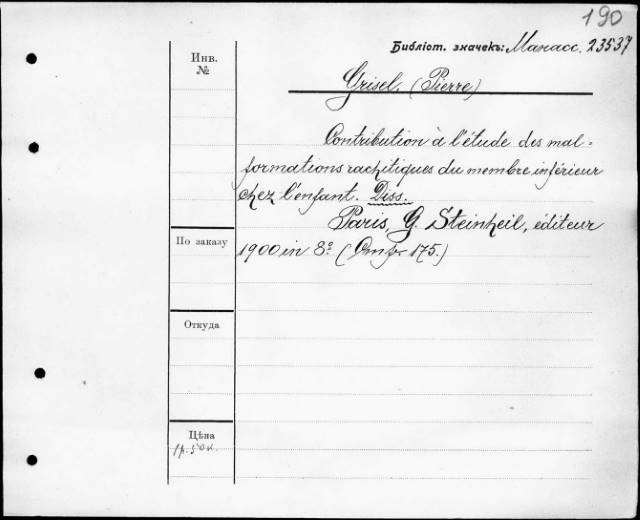 190
Библіот. значекъ: Манасс. 23537
Инв.
№
Grisel. (Pierre)
Contribution à l'étude des mal=
formations rachitiques du membre inférieur
chez l'enfant. Diss.
Paris, G. Steinheil, éditeur
По заказу
1900 in 8º. (Отд. 175.)
Откуда
Цѣна
1р. 50к.